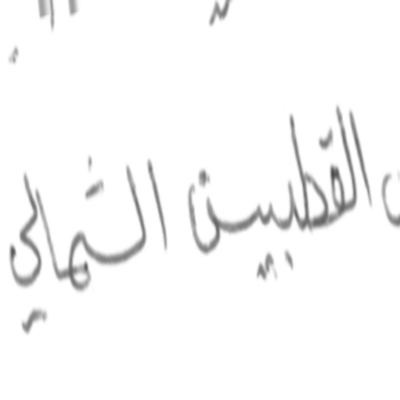 القطبين الشمالي